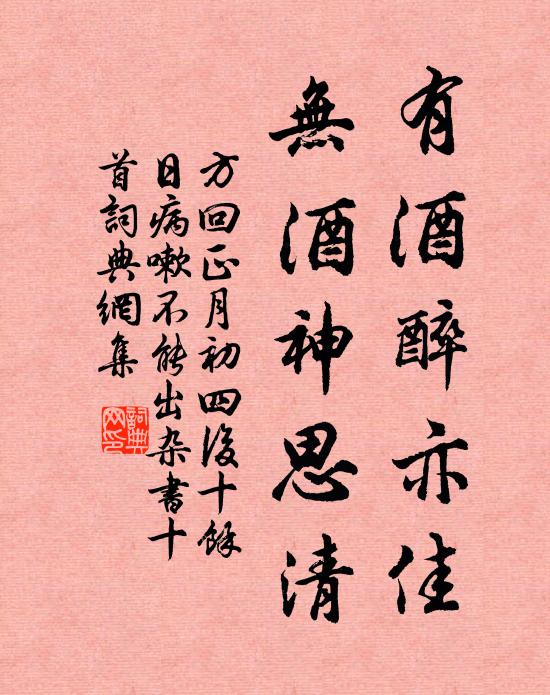 有酒醉亦佳
無酒神思清
方回正月初四後十餘
日病嗽不能出杂書十
首詞典網集
詞典
网印